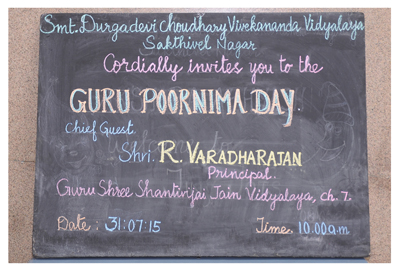 Smt. Durgadevi Choudhary Vivekananda Vidyalaya
Sakthivel Nagar
Cordially invites you to the
GURU POORNIMA DAY.
Chief Guest.
Shri. R. VARADHARAJAN
Principal.
Guru Shree Shantivijai Jain Vidyalaya, ch. 7.
Date : 31.07.15 Time. 10.00a.m